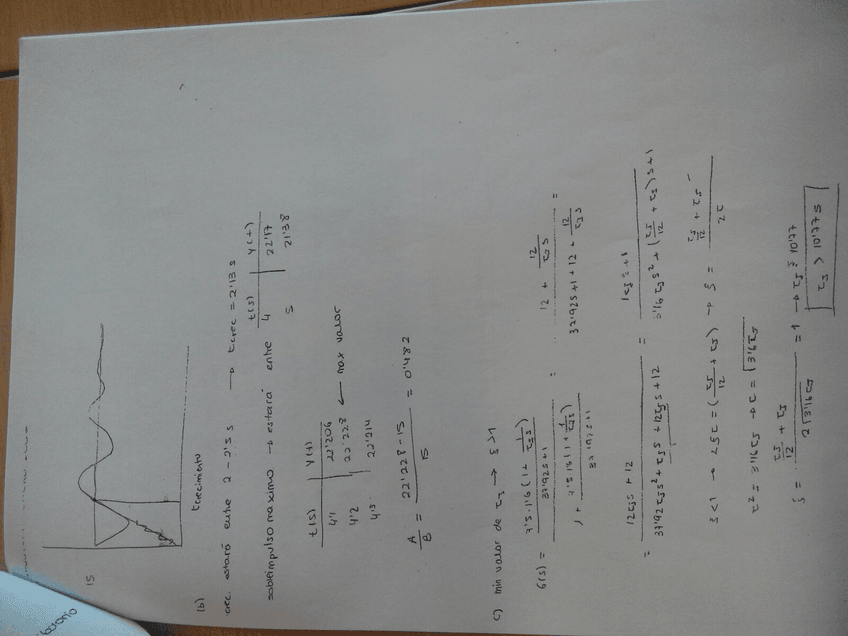 15
tcrecimiento
(b)
crec. estará entre 2 - 2's s → tcrec = 2'13 s
sobreimpulso maximo → estará entre
t(s) y(t)
4 22'17
5 21'38
t(s) y(t)
4'1 22'206
4'2 22'228 ← max valor
4'3 22'214
A/B = (22'228 - 15)/15 = 0'482
c) min valor de τI → ξ > 1
G(s) = (7'5·1'6(1 + 1/(τI s))/(37'92s+1))/(1 + 7'5·1'6(1 + 1/(τI s))/(37'92s+1)) = (12 + 12/(τI s))/(37'92s+1+12+12/(τI s)) =
= (12τI s + 12)/(37'92τI s² + τI s + 12τI s + 12) = (τI s + 1)/(3'16τI s² + (τI/12 + τI)s + 1)
ξ < 1 → 2ξτ = (τI/12 + τI) → ξ = (τI/12 + τI)/(2τ)
τ² = 3'16τI → τ = √(3'16τI)
ξ = (τI/12 + τI)/(2√(3'16τI)) = 1 → τI = 10'77
τI > 10'77 s
bolsario